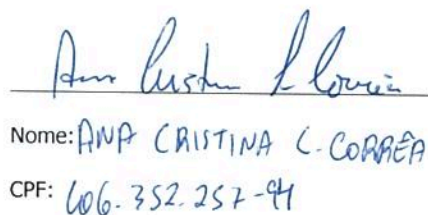 Ana Cristina L Corrêa
Nome: ANA CRISTINA C. CORRÊA
CPF: 606.352.257-94